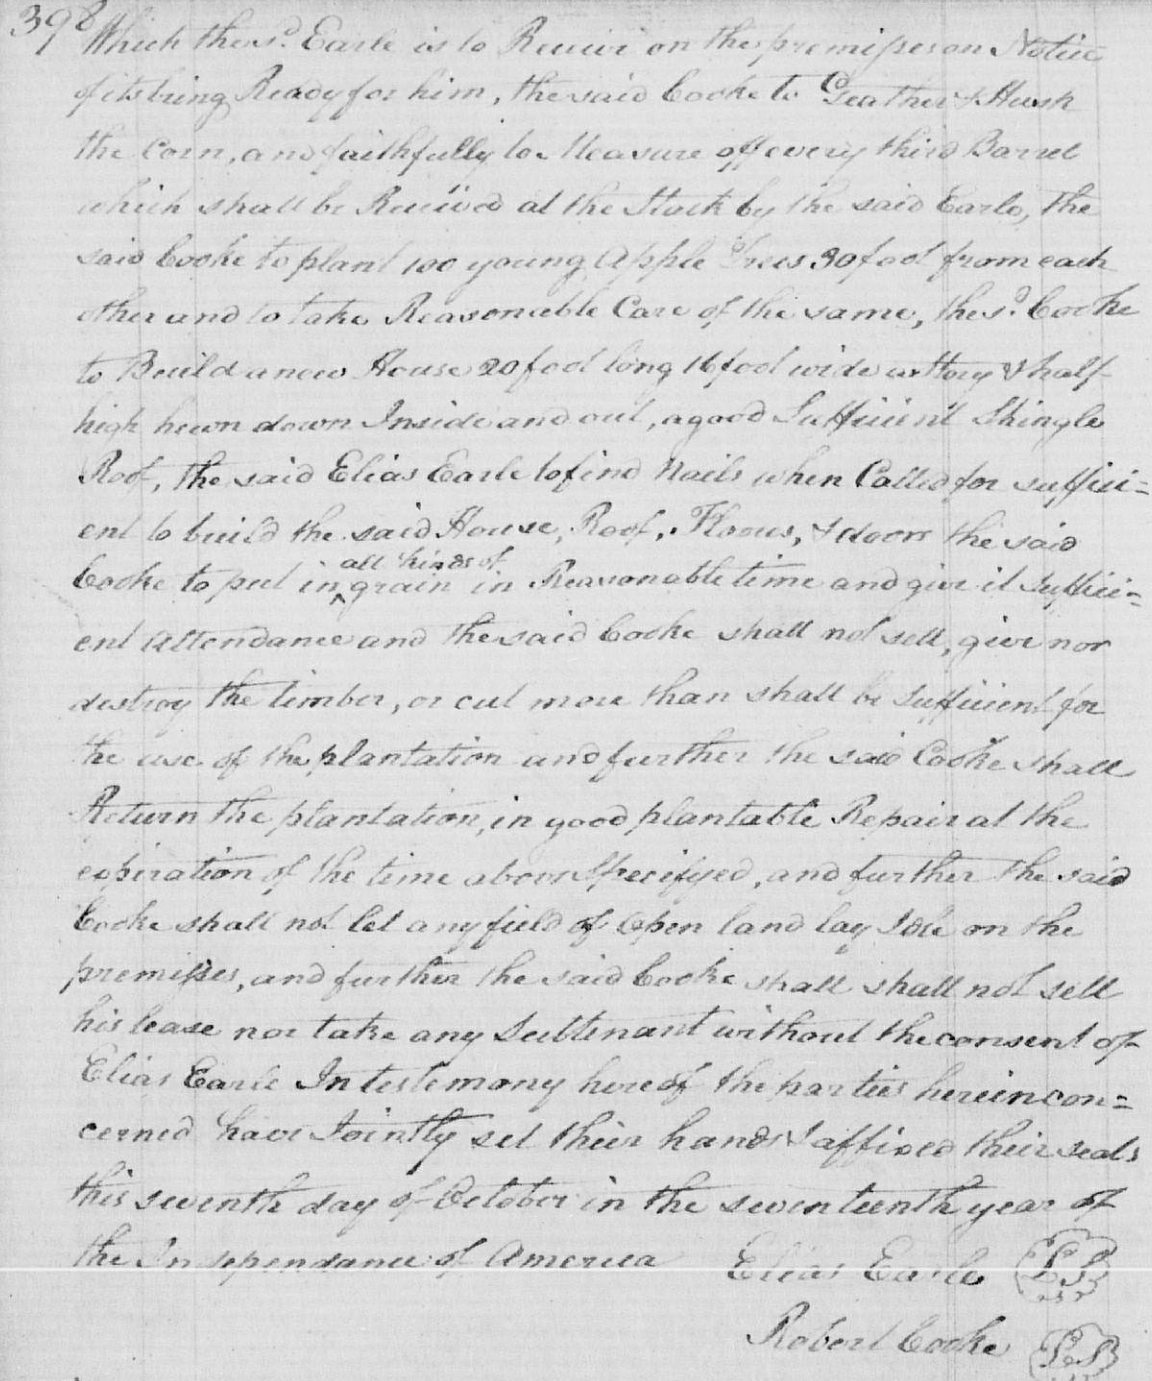 398
Which the sd. Earle is to Receive on the premises on Notice
of its being Ready for him, the said Cooke to Geather & Husk
the Corn, and faithfully to Measure off every third Barrel
which shall be Received at the Stack by the said Earle, the
said Cooke to plant 100 young Apple Trees 30 foot from each
other and to take Reasonable Care of the same, the sd. Cooke
to Build a new House 20 foot long 16 foot wide a Story & half
high hewn down Inside and out, a good Sufficient Shingle
Roof, the said Elias Earle to find Nails when Called for suffici=
ent to build the said House, Roof, Floors, & doors the said
all kinds of
Cooke to put in ^ grain in Reasonable time and give it Suffici=
ent Attendance and the said Cooke shall not sell, give nor
destroy the timber, or cut more than shall be Sufficient for
the use of the plantation and further the said Cooke shall
Return the plantation, in good plantable Repair at the
expiration of the time above Specifyed, and further the said
Cooke shall not let any field of Open land lay Idle on the
premises, and further the said Cooke shall shall not sell
his lease nor take any Subtenant without the consent of
Elias Earle In testemony here of the parties herein con=
cerned have Jointly set their hands & affixed their seals
this seventh day of October in the seventeenth year of
the Independance of America Elias Earle LS
Robert Cooke LS